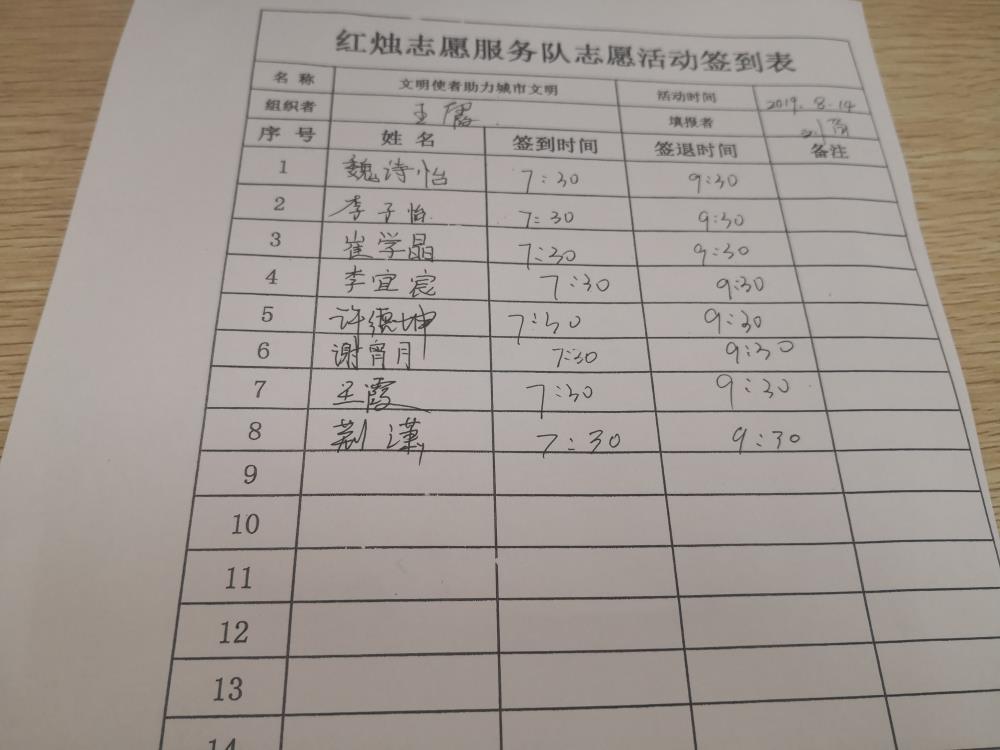 红烛志愿服务队志愿活动签到表
名称 文明使者助力城市文明 活动时间 2019.8.14
组织者 王儒 填报者
序号 姓名 签到时间 签退时间 备注
1 魏诗怡 7:30 9:30
2 李子怡 7:30 9:30
3 崔学晶 7:30 9:30
4 李宜宸 7:30 9:30
5 许德坤 7:30 9:30
6 谢宵月 7:30 9:30
7 王霞 7:30 9:30
8 7:30 9:30
9
10
11
12
13
14